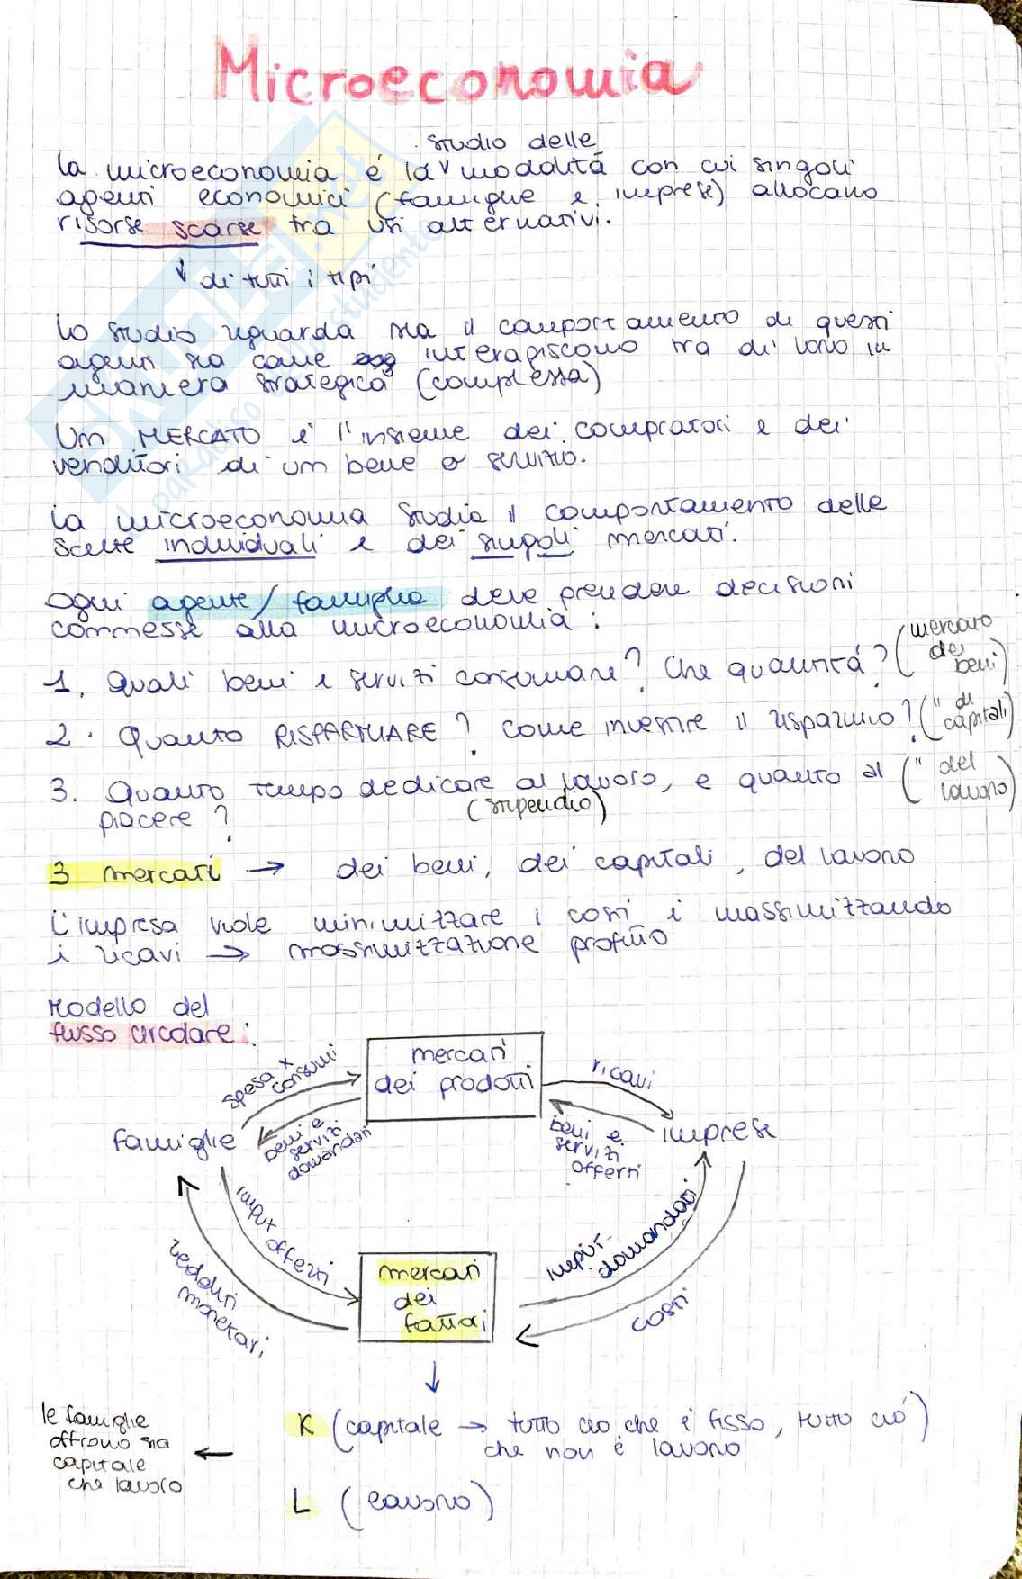 Microeconomia
studio delle
la microeconomia é la v modalitá con cui singoli
agenti economici (famiglie e imprese) allocano
risorse scarse tra usi alternativi.
↓ di tutti i tipi
lo studio riguarda sia il comportamento di questi
agenti sia come interagiscono tra di loro in
maniera strategica (complessa)
Un MERCATO é l'insieme dei compratori e dei
venditori di un bene o servizio.
la microeconomia studia il comportamento delle
scelte individuali e dei singoli mercati.
Ogni agente/famiglia deve prendere decisioni
connesse alla microeconomia:
1. Quali beni e servizi consumare? Che quantitá? (mercato dei beni)
2. Quanto RISPARMIARE? Come investire il risparmio? (" di capitali)
3. Quanto tempo dedicare al lavoro, e quanto al (" del lavoro)
piacere? (stipendio)
3 mercati → dei beni, dei capitali, del lavoro
L'impresa vuole minimizzare i costi e massimizzando
i ricavi → massimizzazione profitto
Modello del
flusso circolare:
mercati
dei prodotti
spesa x
consumi
ricavi
famiglie
beni e
servizi
domandati
beni e
servizi
offerti
imprese
input
offerti
input
domandati
redditi
monetari
mercati
dei
fattori
costi
↓
le famiglie
offrono sia
capitale
che lavoro
←
K (capitale → tutto ció che é fisso, tutto ció)
che non é lavoro
L (lavoro)
SKUOLA.net
paradiso
studente